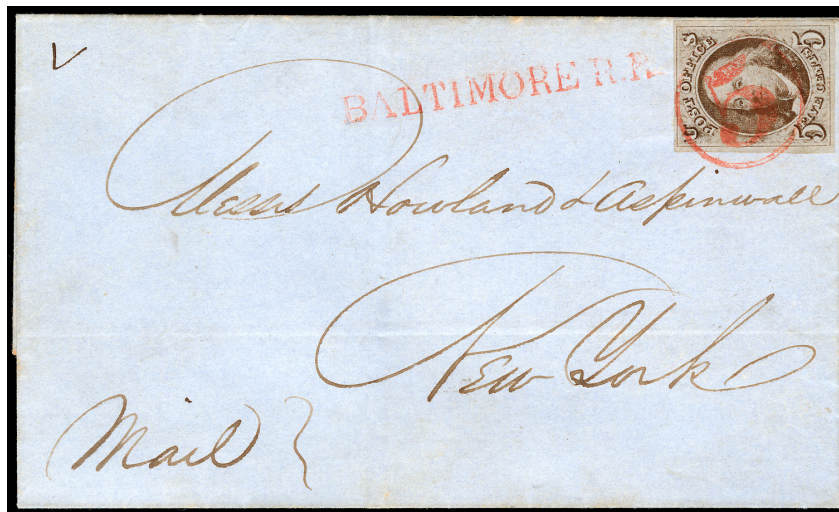 BALTIMORE R.R.
POST OFFICE
5 5
Messrs Howland & Aspinwall
New York
Mail